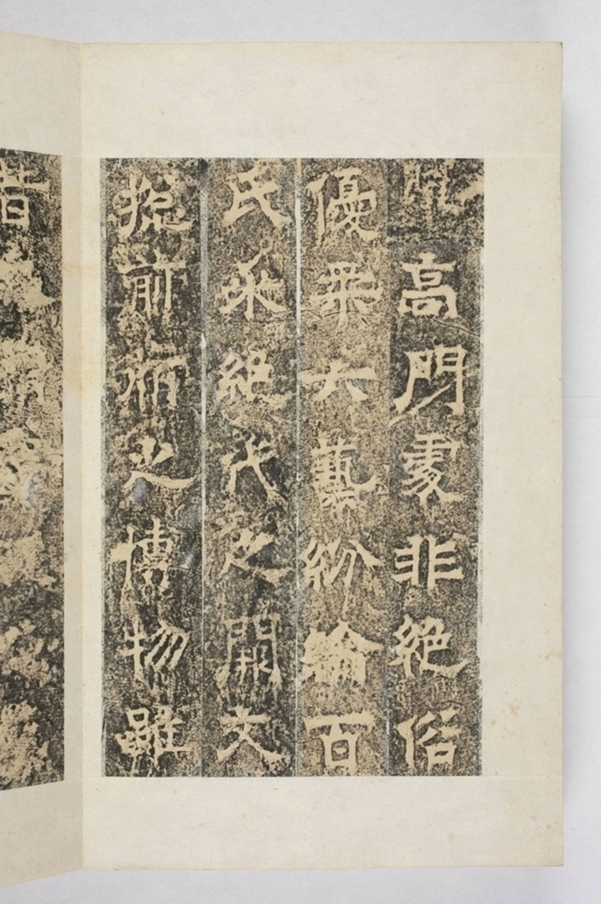 高門處非絕俗
優柔六藝紛綸百
氏采絕代之闕文
捴前之博物雖
昔